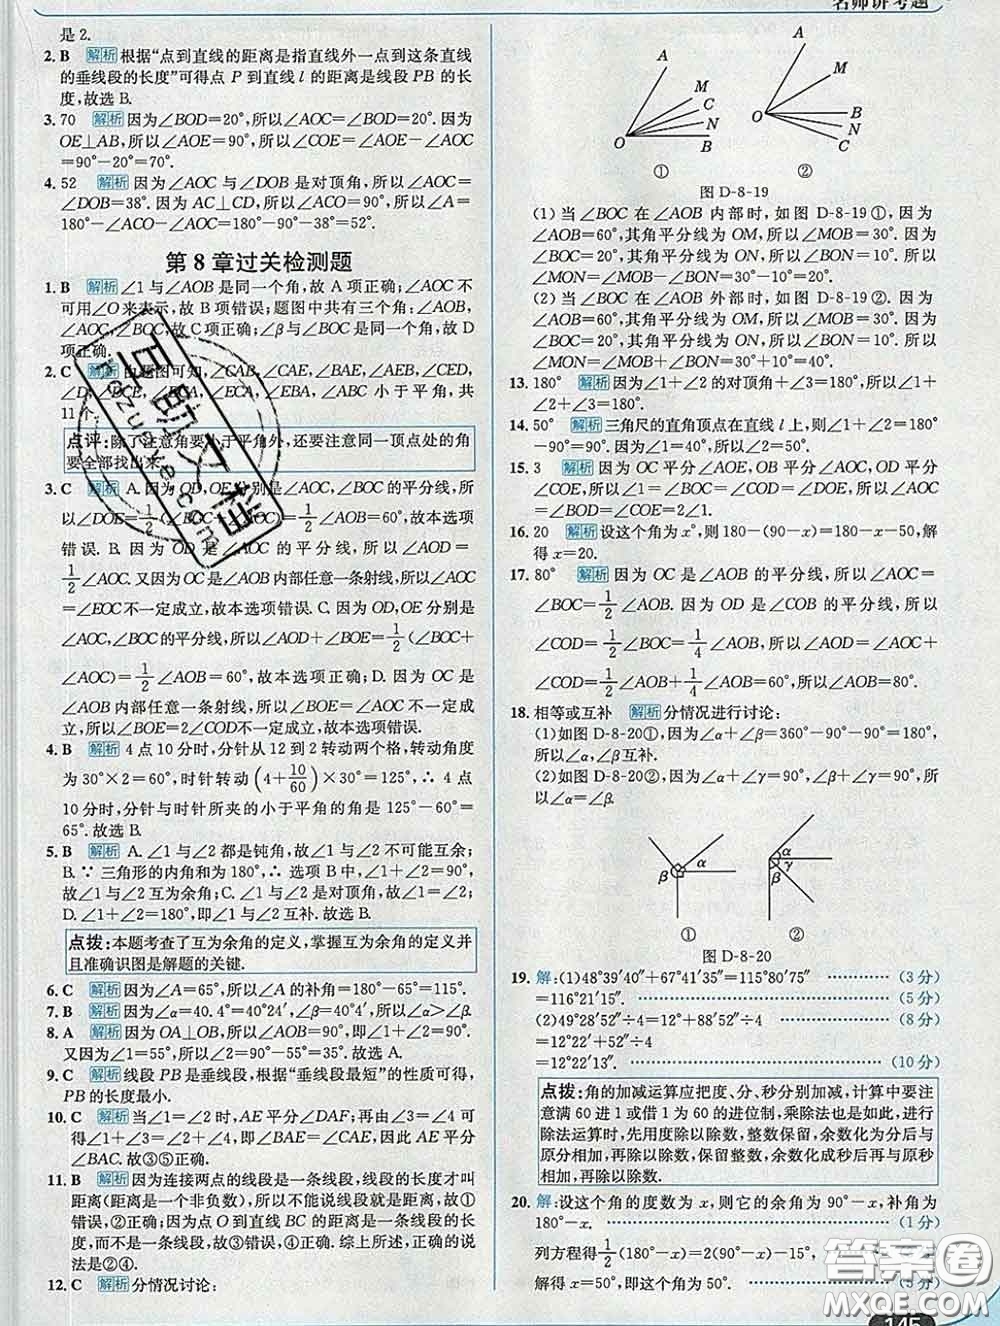 名师讲考题
是2.
2. B 解析 根据“点到直线的距离是指直线外一点到这条直线
的垂线段的长度”可得点 P 到直线 l 的距离是线段 PB 的长
度,故选 B.
3. 70 解析 因为∠BOD=20°,所以∠AOC=∠BOD=20°.因为
OE⊥AB,所以∠AOE=90°,所以∠COE=∠AOE-∠AOC
=90°-20°=70°.
4. 52 解析 因为∠AOC 与∠DOB 是对顶角,所以∠AOC=
∠DOB=38°.因为 AC⊥CD,所以∠ACO=90°,所以∠A=
90°-∠ACO-∠AOC=180°-90°-38°=52°.
第 8 章过关检测题
1. B 解析 ∠1 与∠AOB 是同一个角,故 A 项正确;∠AOC 不
可用∠O来表示,故 B 项错误;题图中共有三个角:∠AOB,
∠AOC,∠BOC,故 C 项正确;∠β与∠BOC 是同一个角,故 D
项正确.
2. C 解析 由题图可知,∠CAB,∠CAE,∠BAE,∠AEB,∠CED,
∠D,∠DCE,∠ECA,∠EBA,∠ABC 小于平角,共
11 个.
点评:除了注意角要小于平角外,还要注意同一顶点处的角
要全部找出来.
3. C 解析 A.因为 OD,OE 分别是∠AOC,∠BOC 的平分线,所
以∠DOE=1/2(∠AOC+∠BOC)=1/2∠AOB=60°,故本选项
错误. B. 因为 OD 是∠AOC 的平分线,所以∠AOD=
1/2∠AOC.又因为 OC 是∠AOB 内部任意一条射线,所以∠AOC
=∠EOC 不一定成立,故本选项错误. C. 因为 OD,OE 分别是
∠AOC,∠BOC 的平分线,所以∠AOD+∠BOE=1/2(∠BOC+
∠AOC)=1/2∠AOB=60°,故本选项正确;D. 因为 OC 是
∠AOB 内部任意一条射线,所以∠BOE=∠AOC 不一定成
立,所以∠BOE=2∠COD 不一定成立,故本选项错误.
4. B 解析 4 点 10 分时,分针从 12 到 2 转动两个格,转动角度
为 30°×2=60°,时针转动(4+10/60)×30°=125°,∴ 4 点
10 分时,分针与时针所夹的小于平角的角是 125°-60°=
65°.故选 B.
5. B 解析 A.∠1 与∠2 都是钝角,故∠1 与∠2 不可能互余;
B. ∵ 三角形的内角和为 180°,∴ 选项 B 中,∠1+∠2=90°,
故∠1 与∠2 互为余角;C.∠1 与∠2 是对顶角,故∠1=∠2;
D.∠1+∠2=180°,即∠1 与∠2 互补.故选 B.
点拨:本题考查了互为余角的定义,掌握互为余角的定义并
且准确识图是解题的关键.
6. C 解析 因为∠A=65°,所以∠A 的补角=180°-65°=115°.
7. B 解析 因为∠α=40.4°=40°24′,∠β=40°4′,所以∠α>∠β.
8. A 解析 因为 OA⊥OB,所以∠AOB=90°,即∠1+∠2=90°.
又因为∠1=55°,所以∠2=90°-55°=35°.故选 A.
9. C 解析 线段 PB 是垂线段,根据“垂线段最短”的性质可得,
PB 的长度最小.
10. C 解析 当∠1=∠2 时,AE 平分∠DAF;再由∠3=∠4 可
得∠1+∠3=∠2+∠4,即∠BAE=∠CAE,因此 AE 平分
∠BAC.故③⑤正确.
11. B 解析 因为连接两点的线段是一条线段,线段的长度才叫
距离(距离是一个非负数),所以不能说线段就是距离,故①
错误,②正确;因为点 O 到直线 BC 的距离是一条线段的长
度,而不是一条线段,故③错误,④正确.综上所述,正确的说
法是②④.
12. C 解析 分情况讨论:
A
M
C
N
B
O
①
A
M
B
N
C
O
②
图 D-8-19
(1) 当∠BOC 在∠AOB 内部时,如图 D-8-19①,因为
∠AOB=60°,其角平分线为 OM,所以∠MOB=30°.因为
∠BOC=20°,其角平分线为 ON,所以∠BON=10°,所以
∠MON=∠MOB-∠BON=30°-10°=20°.
(2) 当∠BOC 在∠AOB 外部时,如图 D-8-19②.因为
∠AOB=60°,其角平分线为 OM,所以∠MOB=30°.因为
∠BOC=20°,其角平分线为 ON,所以∠BON=10°,所以
∠MON=∠MOB+∠BON=30°+10°=40°.
13. 180° 解析 因为∠1+∠2 的对顶角+∠3=180°,所以∠1+
∠2+∠3=180°.
14. 50° 解析 三角尺的直角顶点在直线 l 上,所以∠1+∠2=180°
-90°=90°.因为∠1=40°,所以∠2=50°.
15. 3 解析 因为 OC 平分∠AOE,OB 平分∠AOC,OD 平分
∠COE,所以∠1=∠BOC=∠COD=∠DOE,所以
∠COE=∠BOC+∠COD=∠COE=2∠1.
16. 20 解析 设这个角为 x°,则 180-(90-x)=180-x-50,解
得 x=20.
17. 80° 解析 因为 OC 是∠AOB 的平分线,所以∠AOC=
∠BOC=1/2∠AOB.因为 OD 是∠COB 的平分线,所以
∠COD=1/2∠BOC=1/4∠AOB,所以∠COD=1/4∠AOB.
因为∠COD=20°,所以∠AOB=80°.
18. 相等或互补 解析 分情况进行讨论:
(1)如图 D-8-20①,∠α+∠β=360°-90°-90°=180°,
所以∠α,∠β互补.
(2)如图 D-8-20②,因为∠α+∠γ=90°,∠β+∠γ=90°,所
以∠α=∠β.
α
β
①
α
γ
β
②
图 D-8-20
19. 解:(1)48°39′40″+67°41′35″=115°80′75″ (3 分)
=116°21′15″. (5 分)
(2)49°28′52″÷4=12°+88′52″÷4 (8 分)
=12°22′+52″÷4
=12°22′13″. (10 分)
点拨:角的加减运算应把度、分、秒分别加减,计算中要注
意满 60 进 1 或借 1 为 60 的进位制,乘除法也是如此,进行
除法运算时,先用度除以除数,整数保留,余数化为分后与
原分相加,再除以除数,整数保留,余数化成秒后再与原秒
相加,再除以除数.
20. 解:设这个角的度数为 x,则它的余角为 90°-x,补角为
180°-x. (1 分)
列方程得1/2(180°-x)=2(90°-x)-15°,
解得 x=50°,即这个角为 50°. (5 分)
互助文档
hezuoke.com
答案圈
MXQE.COM
145